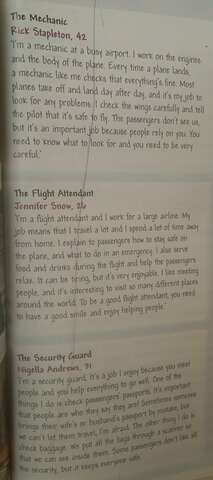 The Mechanic
Rick Stapleton, 42
'I'm a mechanic at a busy airport. I work on the engines
and the body of the plane. Every time a plane lands,
a mechanic like me checks that everything's fine. Most
planes take off and land day after day, and it's my job to
look for any problems. I check the wings carefully and tell
the pilot that it's safe to fly. The passengers don't see us,
but it's an important job because people rely on you. You
need to know what to look for and you need to be very
careful.'
The Flight Attendant
Jennifer Snow, 26
'I'm a flight attendant and I work for a large airline. My
job means that I travel a lot and I spend a lot of time away
from home. I explain to passengers how to stay safe on
the plane, and what to do in an emergency. I also serve
food and drinks during the flight and help the passengers
relax. It can be tiring, but it's very enjoyable. I like meeting
people, and it's interesting to visit so many different places
around the world. To be a good flight attendant, you need
to have a good smile and enjoy helping people.'
The Security Guard
Nigella Andrews, 31
'I'm a security guard. It's a job I enjoy because you meet
people and you help everything to go well. One of the
things I do is check passengers' passports. It's important
that people are who they say they are! Sometimes someone
brings their wife's or husband's passport by mistake, but
we can't let them travel, I'm afraid. The other thing I do is
check baggage. We put all the bags through a scanner so
that we can see inside them. Some passengers don't like all
the security, but it keeps everyone safe.